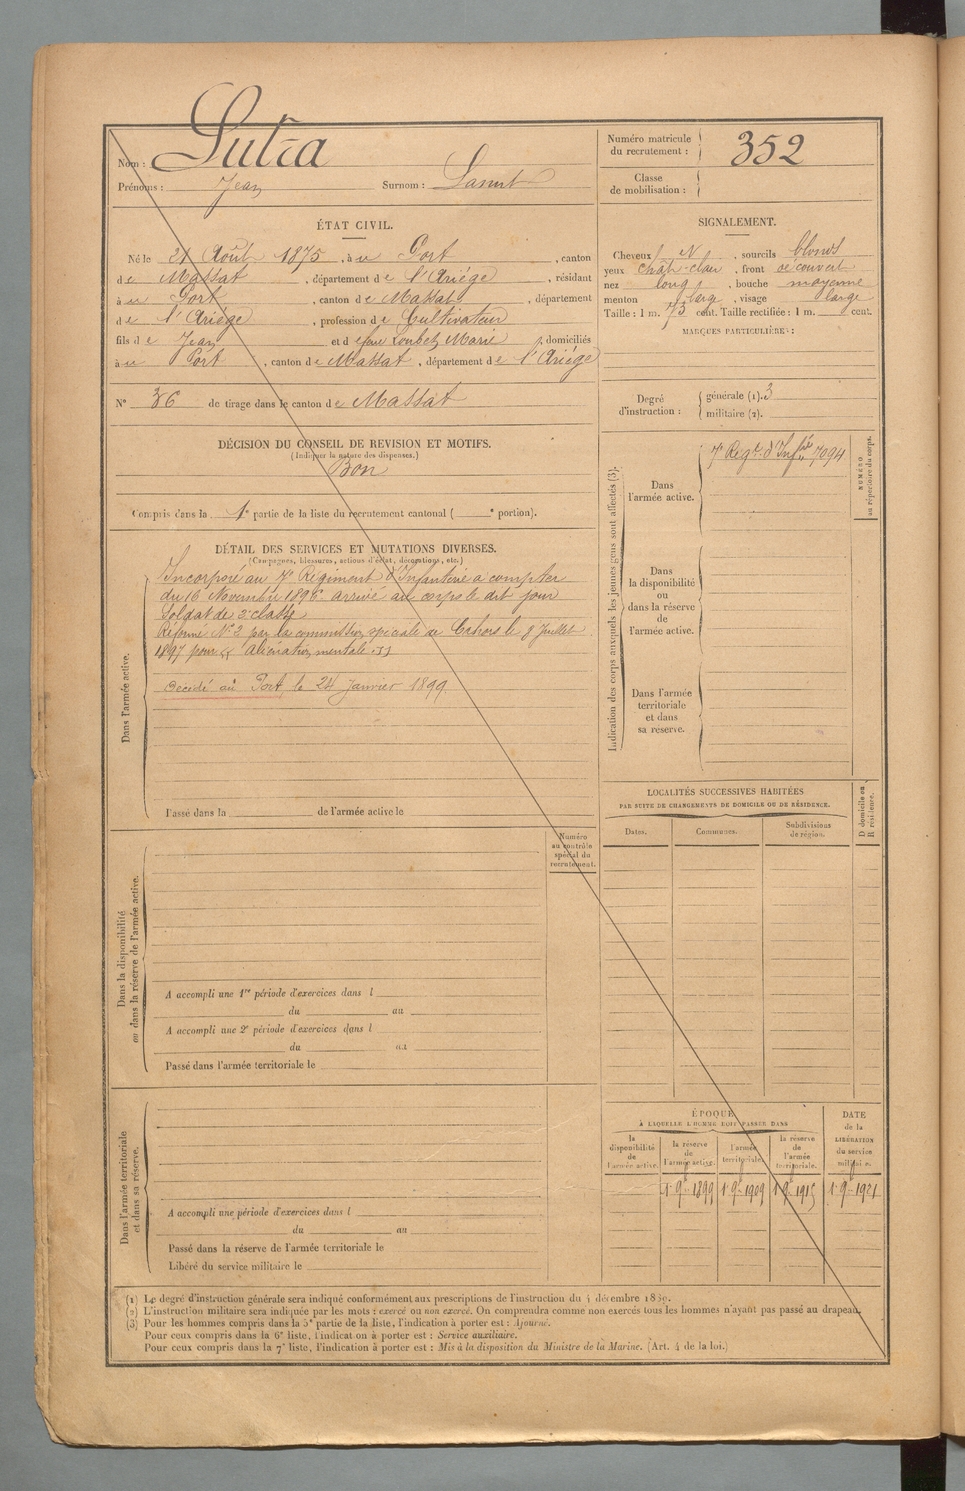 Nom : Lutra
Prénoms : Jean Surnom :
Numéro matricule
du recrutement : 352
Classe
de mobilisation :
ÉTAT CIVIL.
Né le 21 Août 1875, à u Port, canton
de Massat, département de l'Ariége, résidant
à u Port, canton de Massat, département
de l'Ariége, profession de Cultivateur
fils de Jean et d feue Loubet Marie, domiciliés
à u Port, canton de Massat, département de l'Ariége
N° 36 de tirage dans le canton de Massat
SIGNALEMENT.
Cheveux N, sourcils blonds
yeux chât-clair, front découvert
nez long, bouche moyenne
menton large, visage large
Taille : 1 m. 73 cent. Taille rectifiée : 1 m. cent.
MARQUES PARTICULIÈRES :
Degré
d'instruction :
générale (1). 3
militaire (2).
DÉCISION DU CONSEIL DE REVISION ET MOTIFS.
(Indiquer la nature des dispenses.)
Bon
Compris dans la 1e partie de la liste du recrutement cantonal ( e portion).
DÉTAIL DES SERVICES ET MUTATIONS DIVERSES.
(Campagnes, blessures, actions d'éclat, décorations, etc.)
Dans l'armée active.
Incorporé au 7e Régiment d'Infanterie a compter
du 16 Novembre 1896 arrivé au corps le dit jour
Soldat de 2e classe
Réformé N° 2 par la commission spéciale de Cahors le 8 Juillet
1897 pour « Aliénation mentale »
Décédé au Port le 24 Janvier 1899
Passé dans la de l'armée active le
Indication des corps auxquels les jeunes gens sont affectés (3).
Dans
l'armée active.
7e Régt d'Infrie 7094
NUMÉRO
au répertoire du corps.
Dans
la disponibilité
ou
dans la réserve
de
l'armée active.
Dans l'armée
territoriale
et dans
sa réserve.
LOCALITÉS SUCCESSIVES HABITÉES
PAR SUITE DE CHANGEMENTS DE DOMICILE OU DE RÉSIDENCE.
Dates.
Communes.
Subdivisions
de région.
D domicile ou
R résidence.
Dans la disponibilité
ou dans la réserve de l'armée active.
Numéro
au contrôle
spécial du
recrutement.
A accompli une 1re période d'exercices dans l
du au
A accompli une 2e période d'exercices dans l
du au
Passé dans l'armée territoriale le
Dans l'armée territoriale
et dans sa réserve.
A accompli une période d'exercices dans l
du au
Passé dans la réserve de l'armée territoriale le
Libéré du service militaire le
ÉPOQUE
À LAQUELLE L'HOMME DOIT PASSER DANS
la
disponibilité
de
l'armée active.
la réserve
de
l'armée active.
l'armée
territoriale.
la réserve
de
l'armée
territoriale.
DATE
de la
LIBÉRATION
du service
militaire.
1 9re 1899 1 9re 1909 1 9re 1915 1 9re 1921
(1) Le degré d'instruction générale sera indiqué conformément aux prescriptions de l'instruction du 4 décembre 1889.
(2) L'instruction militaire sera indiquée par les mots : exercé ou non exercé. On comprendra comme non exercés tous les hommes n'ayant pas passé au drapeau.
(3) Pour les hommes compris dans la 5e partie de la liste, l'indication à porter est : Ajourné.
Pour ceux compris dans la 6e liste, l'indication à porter est : Service auxiliaire.
Pour ceux compris dans la 7e liste, l'indication à porter est : Mis à la disposition du Ministre de la Marine. (Art. 4 de la loi.)